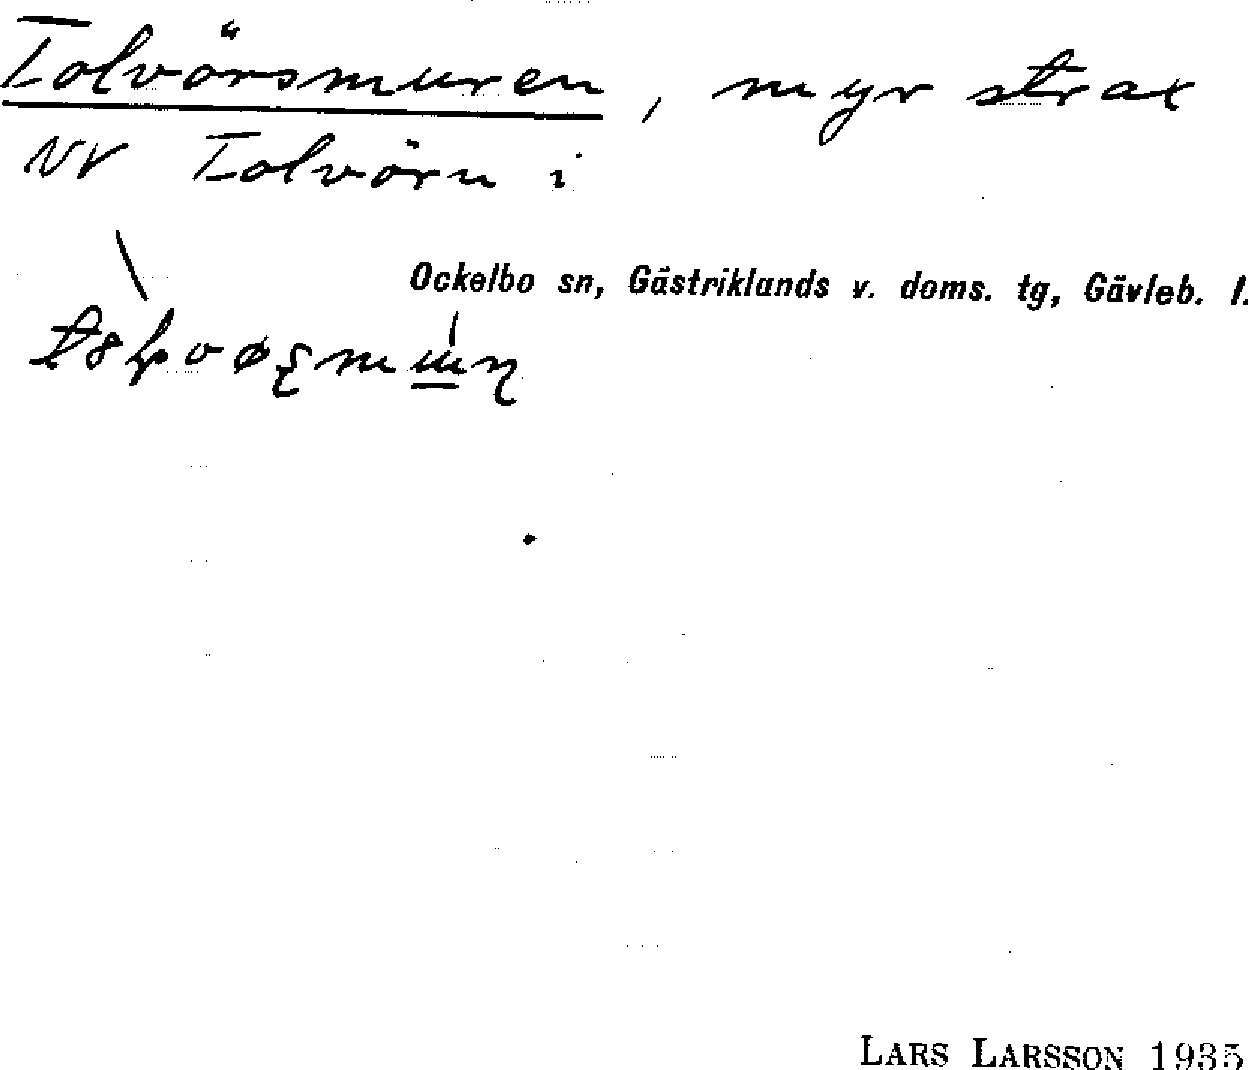 Tolvörsmuren, myr strax
NV Tolvörn i
Ockelbo sn, Gästriklands v. doms. tg, Gävleb. l.
LARS LARSSON 1935